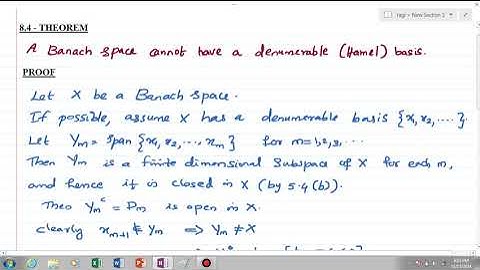 Yagi > New Section 2
8.4 - THEOREM
A Banach space cannot have a denumerable (Hamel) basis.
PROOF
Let X be a Banach space.
If possible, assume X has a denumerable basis {x₁, x₂, ....}.
Let Yₘ = span {x₁, x₂, ..., xₘ} for m=1,2,3,...
Then Yₘ is a finite dimensional subspace of X for each m,
and hence it is closed in X (by 5.4(b)).
Then Yₘᶜ = Dₘ is open in X.
clearly xₘ₊₁ ∉ Yₘ ⟹ Yₘ ≠ X